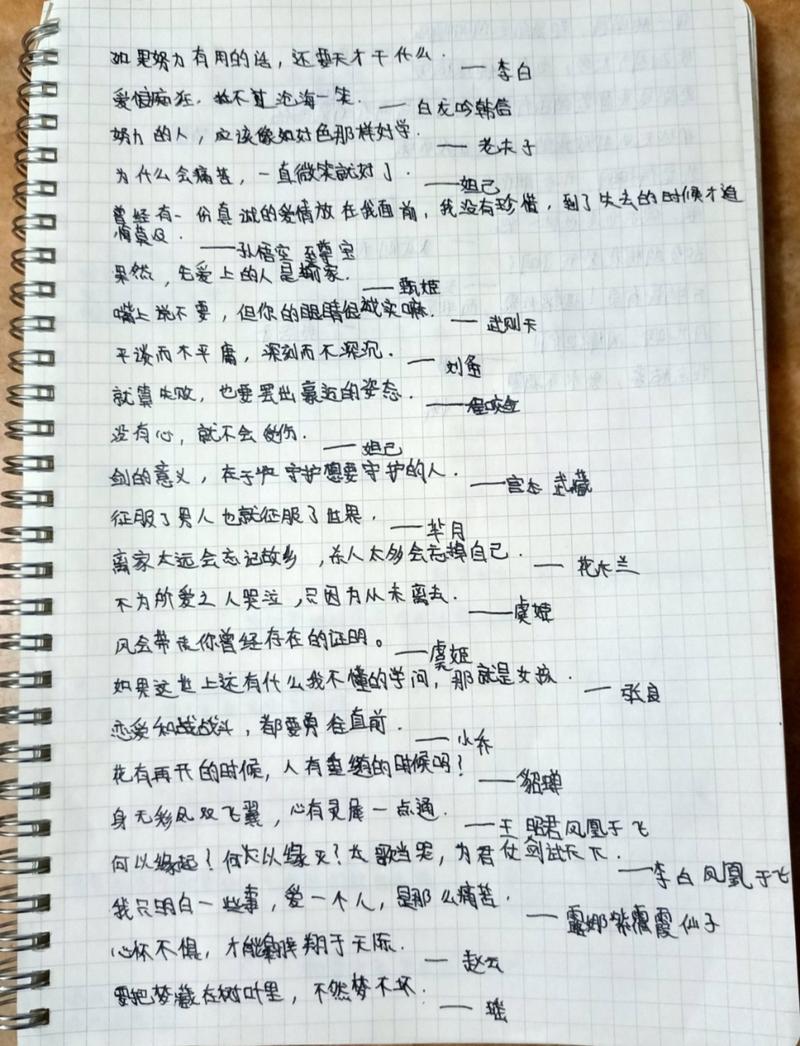 如果努力有用的话，还要天才干什么. ——李白
爱恨痴狂，敌不过沧海一笑. ——白龙吟韩信
努力的人，应该像好色那样好学. ——老夫子
为什么会痛苦，一直微笑就好了. ——妲己
曾经有一份真诚的爱情放在我面前，我没有珍惜，到了失去的时候才追
悔莫及. ——孙悟空 至尊宝
果然，先爱上的人是输家. ——甄姬
嘴上说不要，但你的眼睛很诚实嘛. ——武则天
平淡而不平庸，深刻而不深沉. ——刘备
就算失败，也要摆出豪迈的姿态. ——程咬金
没有心，就不会受伤. ——妲己
剑的意义，在于守护想要守护的人. ——宫本 武藏
征服了男人也就征服了世界. ——芈月
离家太远会忘记故乡，杀人太多会忘掉自己. ——花木兰
不为所爱之人哭泣，只因为从未离去. ——虞姬
风会带走你曾经存在的证明。 ——虞姬
如果这世上还有什么我不懂的学问，那就是女孩. ——张良
恋爱和战战斗，都要勇往直前. ——小乔
花有再开的时候，人有重逢的时候吗？ ——貂蝉
身无彩凤双飞翼，心有灵犀一点通. ——王昭君凤凰于飞
何以缘起？何以缘灭？长歌当哭，为君仗剑试天下. ——李白 凤凰于飞
我只明白一些事，爱一个人，是那么痛苦. ——露娜紫霞仙子
心怀不惧，才能翱翔于天际. ——赵云
要把梦藏在树叶里，不然梦不坏. ——瑶